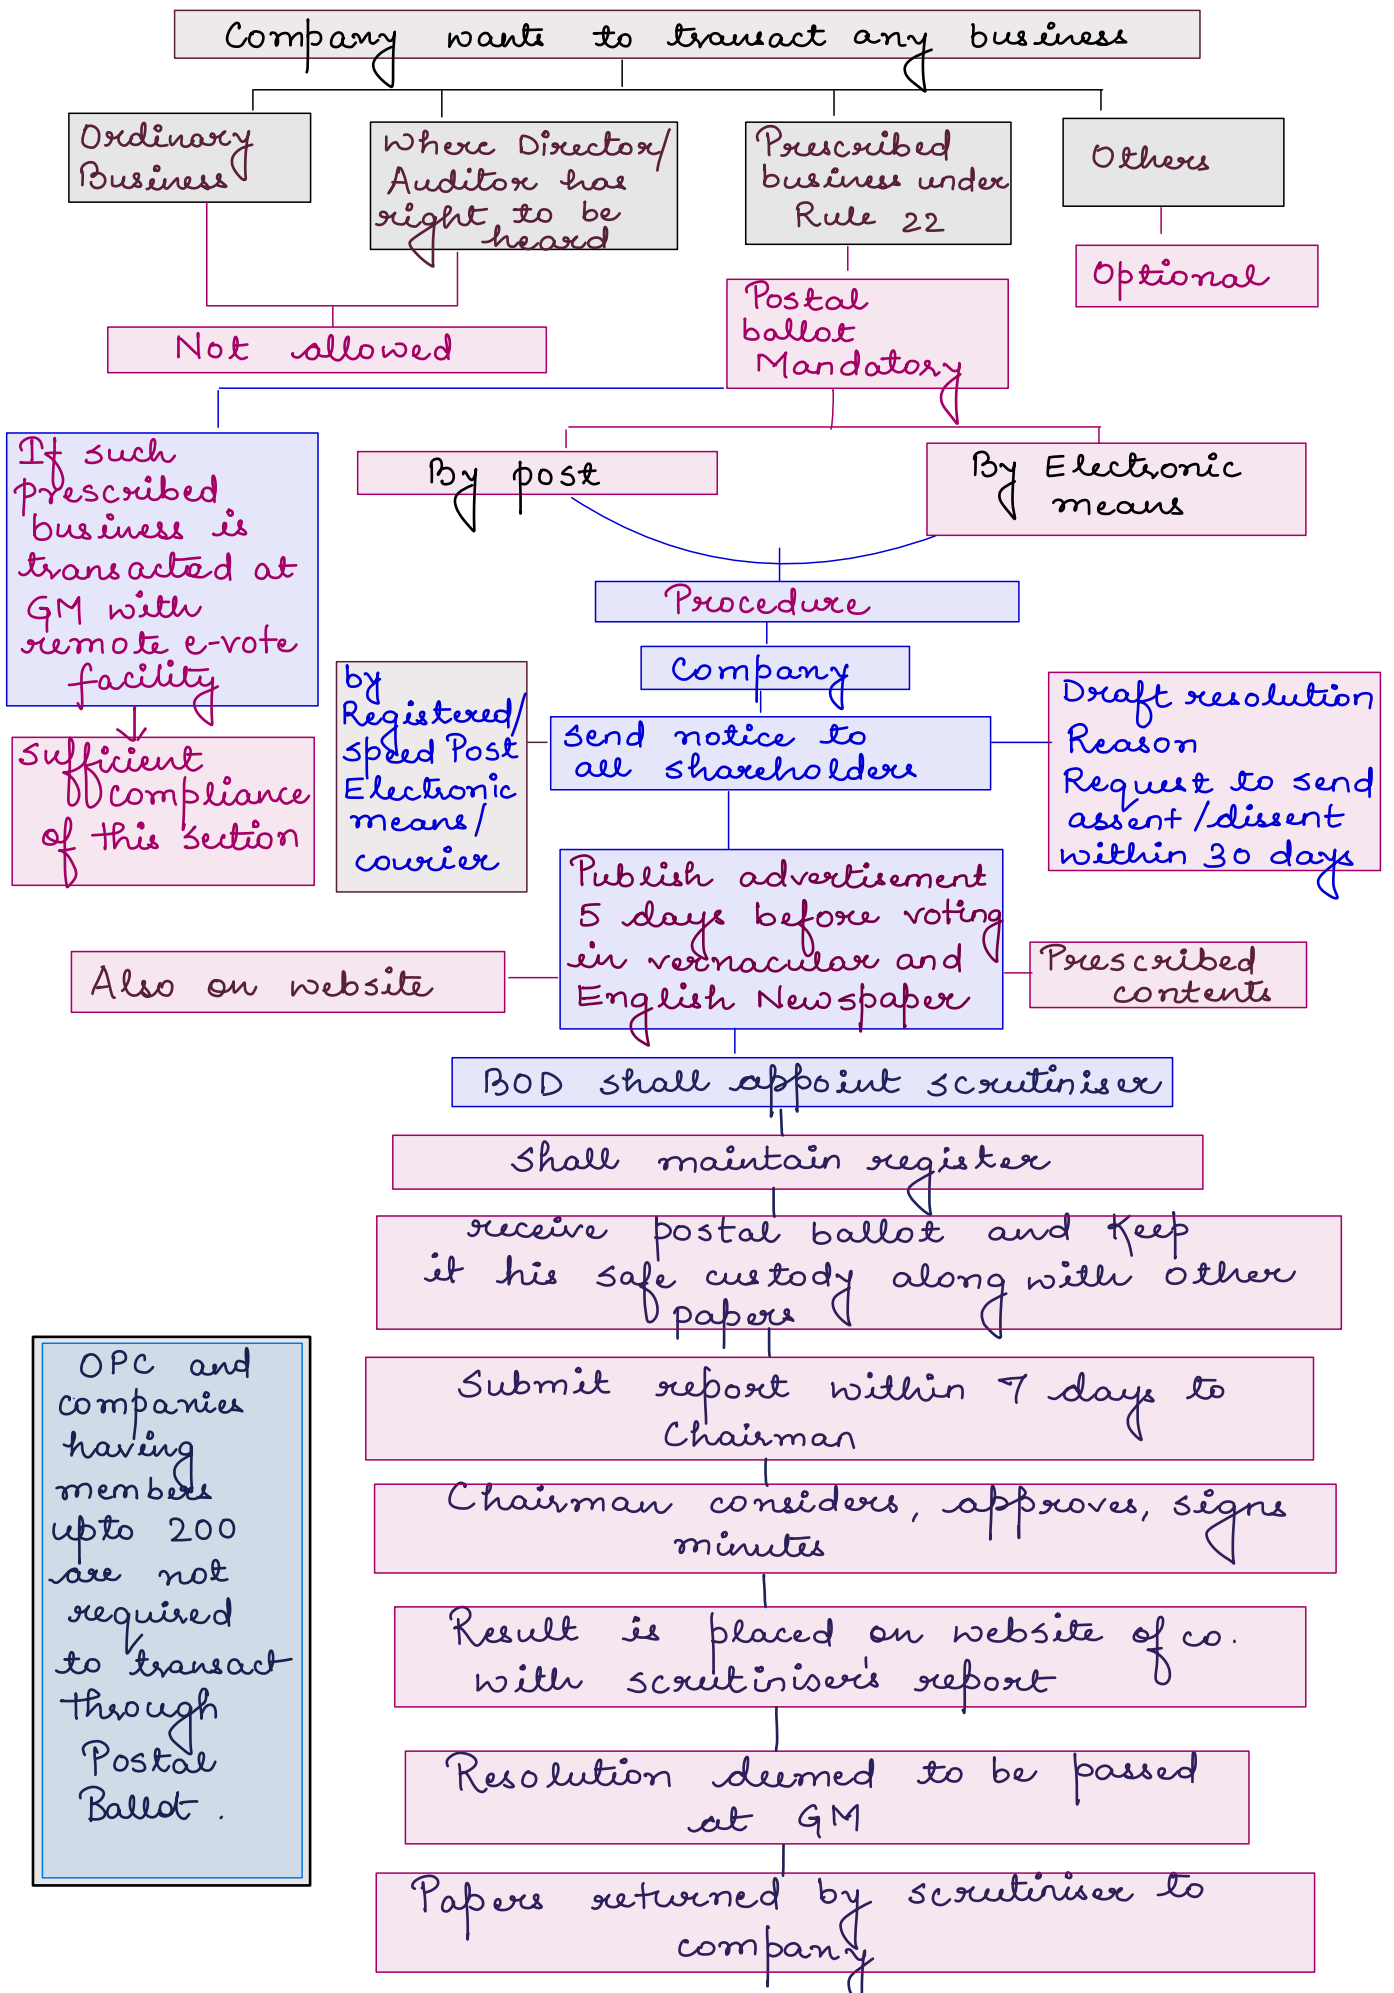 Company wants to transact any business
Ordinary
Business
Where Director/
Auditor has
right to be
heard
Prescribed
business under
Rule 22
Others
Optional
Not allowed
Postal
ballot
Mandatory
If such
prescribed
business is
transacted at
GM with
remote e-vote
facility
Sufficient
compliance
of this section
By post
By Electronic
means
Procedure
Company
by
Registered/
speed Post
Electronic
means/
courier
send notice to
all shareholders
Draft resolution
Reason
Request to send
assent/dissent
within 30 days
Publish advertisement
5 days before voting
in vernacular and
English Newspaper
Also on website
Prescribed
contents
BOD shall appoint scrutiniser
Shall maintain register
receive postal ballot and Keep
it his safe custody along with other
papers
Submit report within 7 days to
Chairman
Chairman considers, approves, signs
minutes
Result is placed on website of co.
with scrutiniser's report
Resolution deemed to be passed
at GM
Papers returned by scrutiniser to
company
OPC and
companies
having
members
upto 200
are not
required
to transact
through
Postal
Ballot.